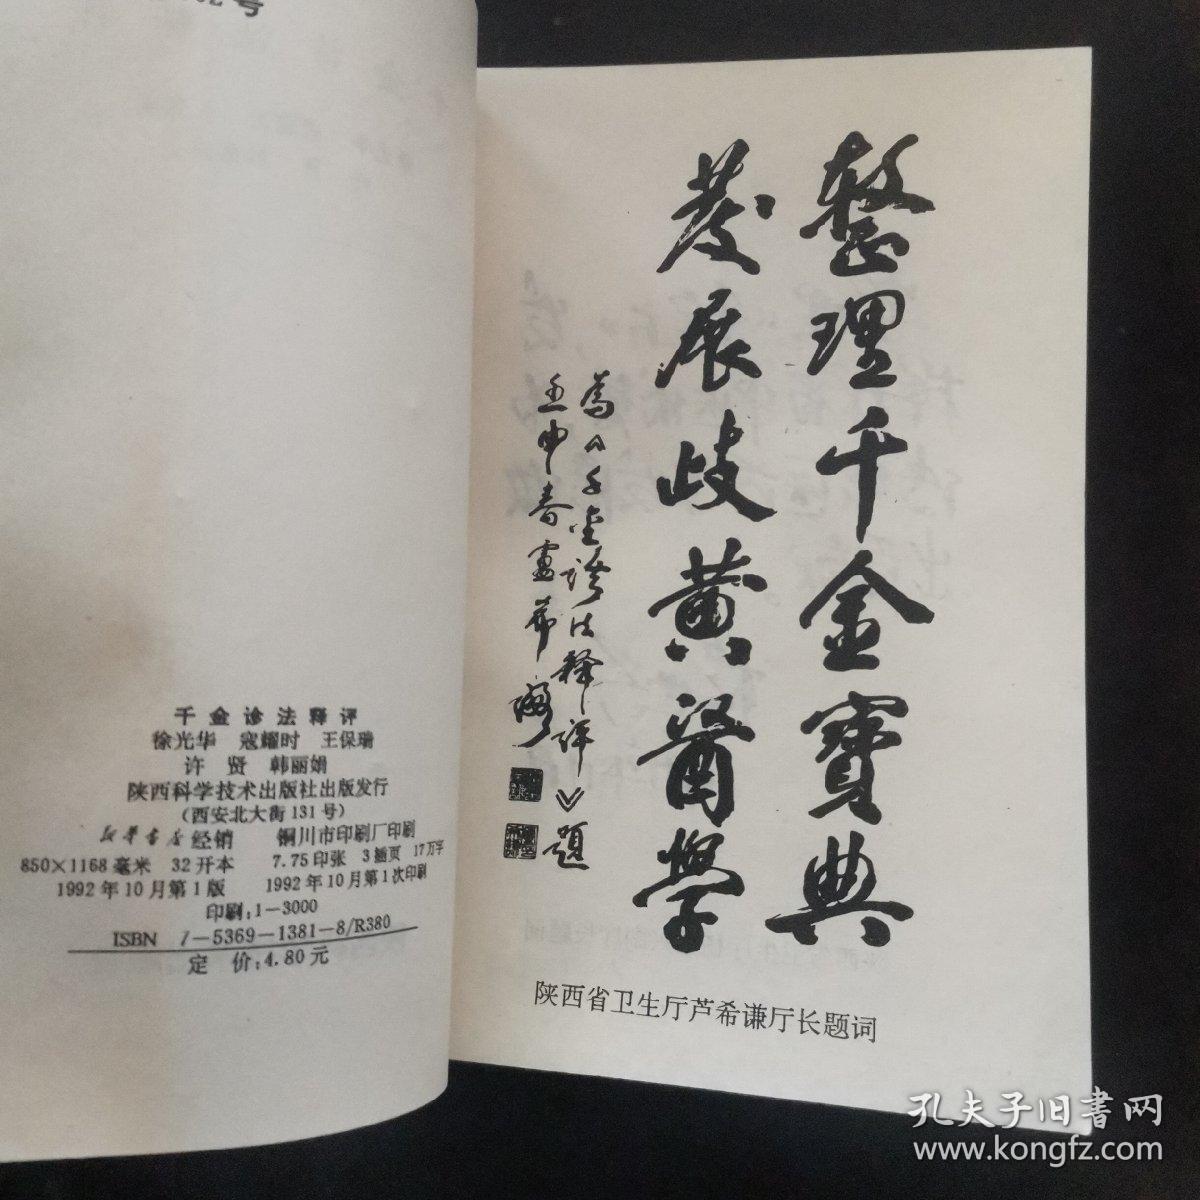 号
千金诊法释评
徐光华 寇耀时 王保瑞
许贤 韩丽娟
陕西科学技术出版社出版发行
(西安北大街131号)
新华书店经销 铜川市印刷厂印刷
850×1168毫米 32开本 7.75印张 3插页 17万字
1992年10月第1版 1992年10月第1次印刷
印刷:1-3000
ISBN 7-5369-1381-8/R380
定价:4.80元
整理千金寶典
发展歧黄醫學
为《千金诊法释评》题
壬申春 盧希谦
陕西省卫生厅芦希谦厅长题词
孔夫子旧書网
www.kongfz.com